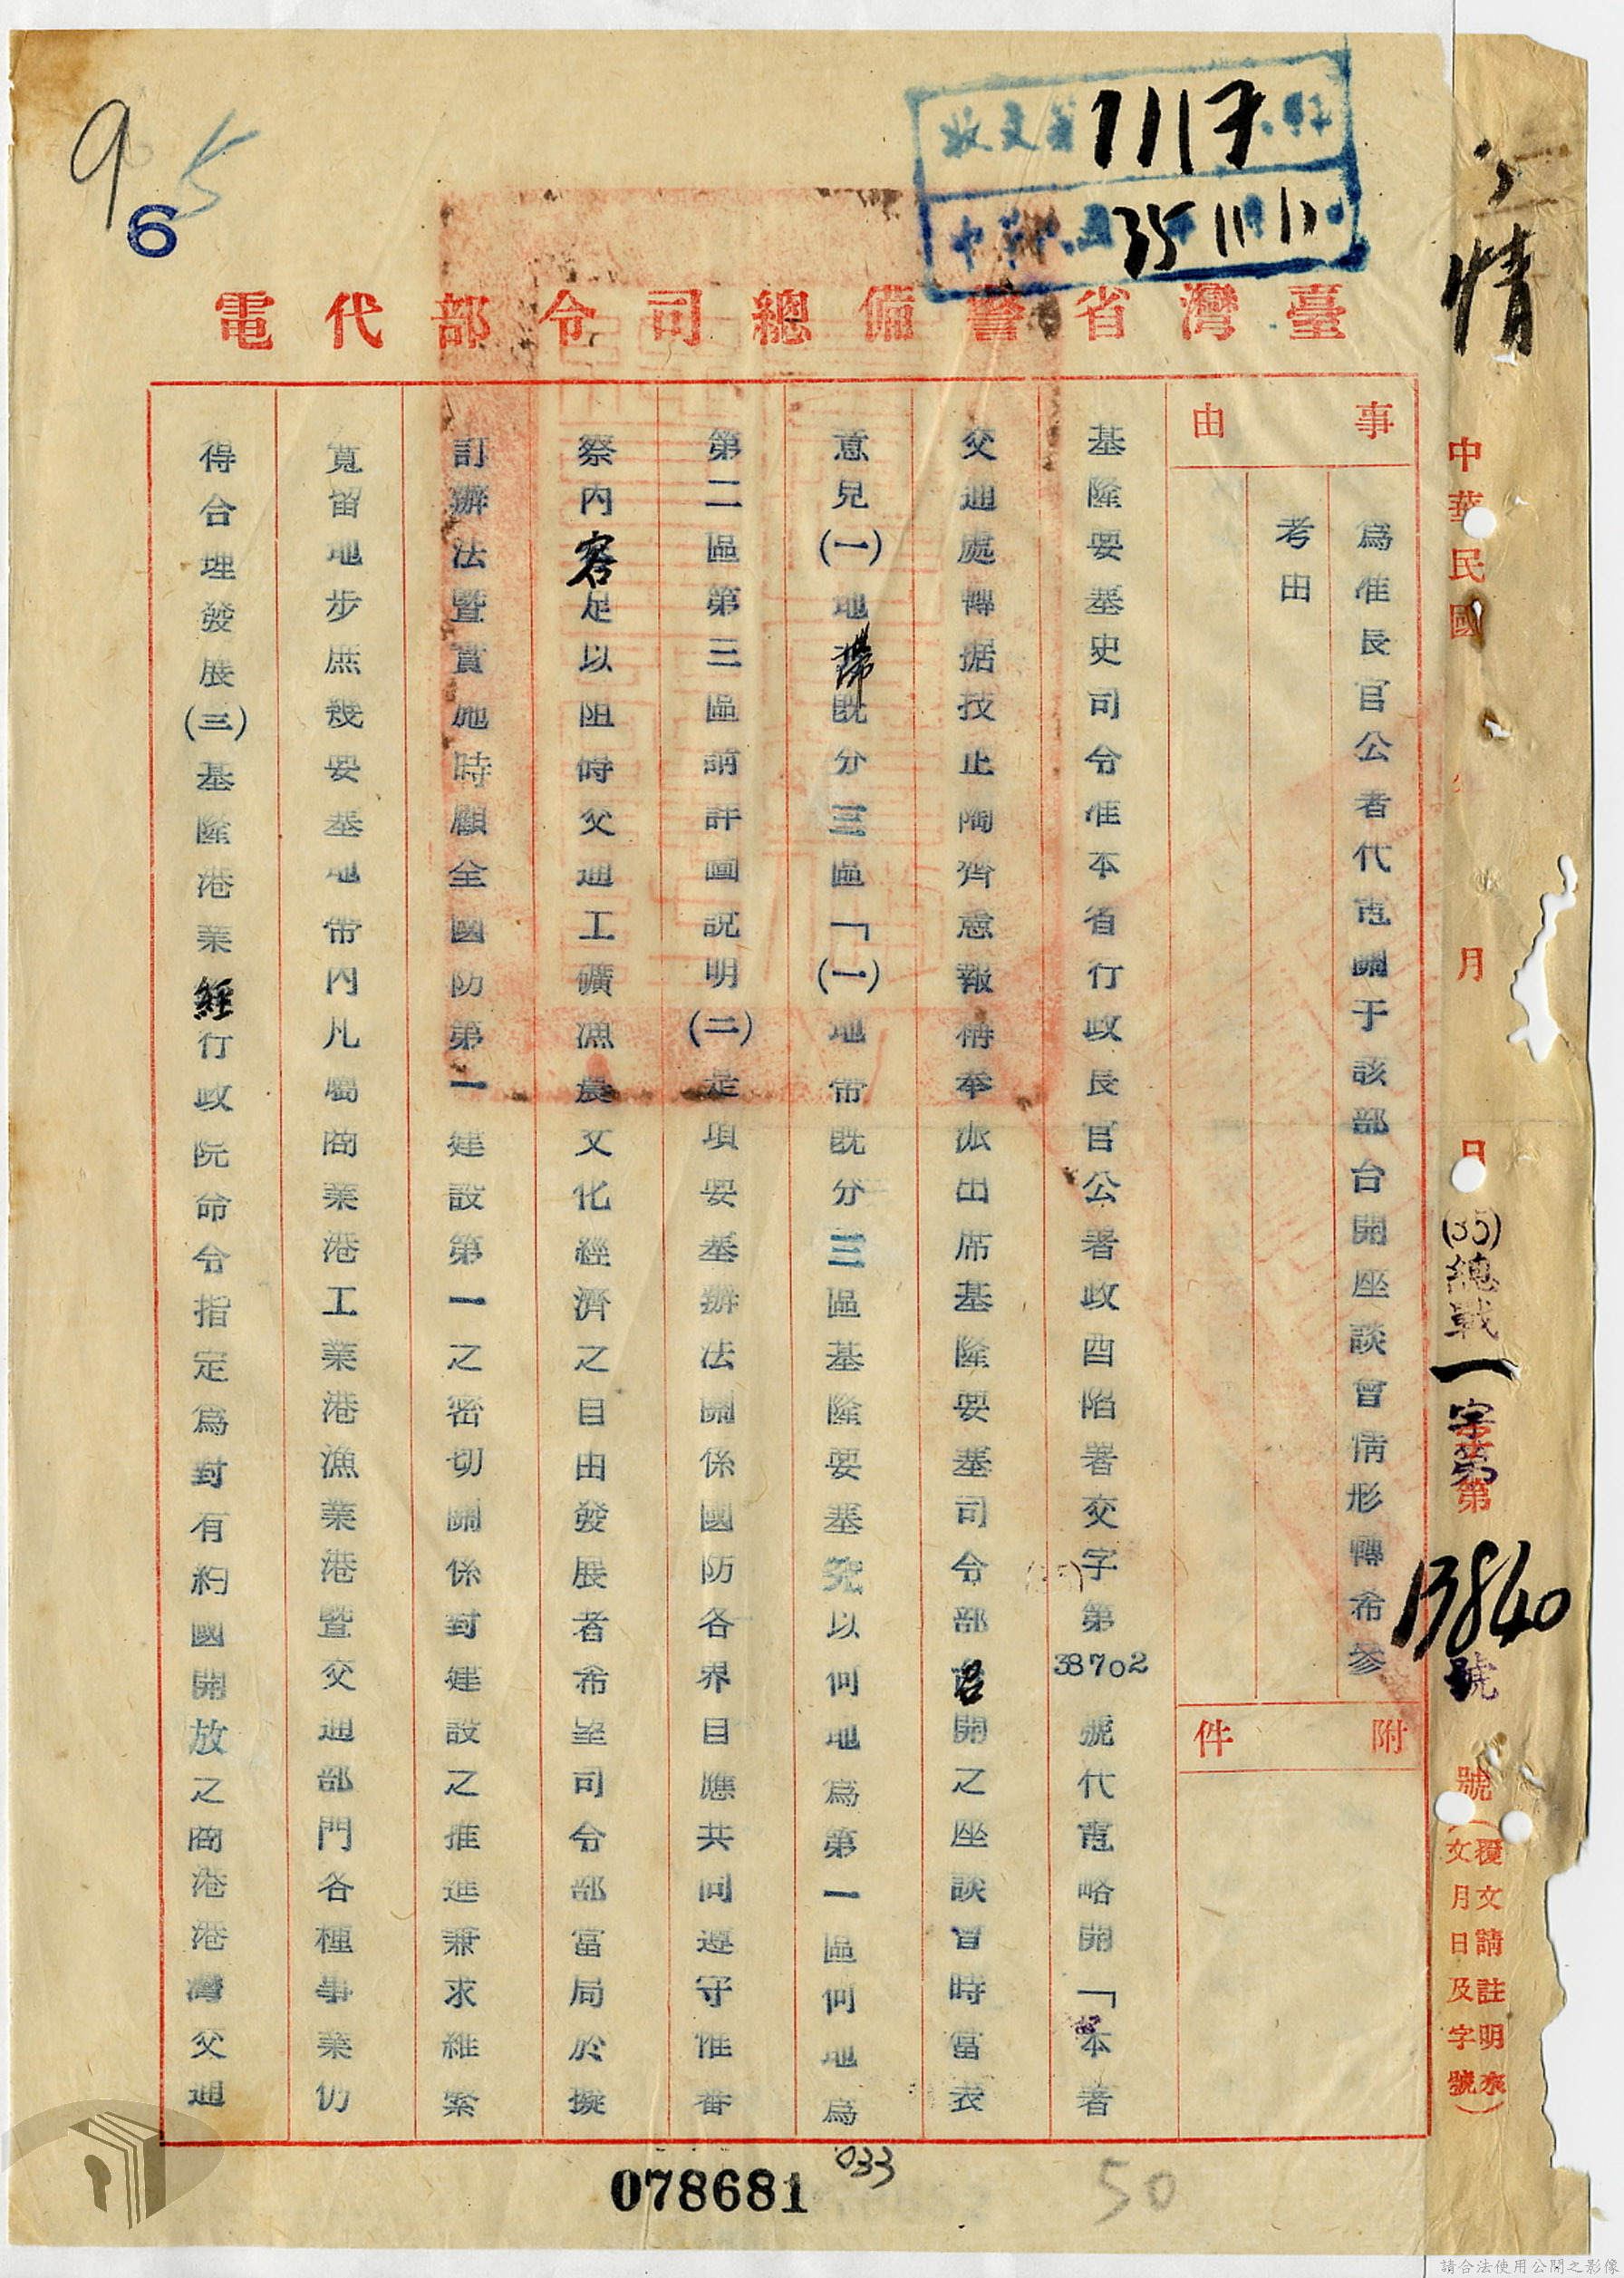 臺灣省警備總司令部代電
中華民國 年 月 日
(35)總戰一字第
13840號
號(覆文請註明來文月日及字號)
情
收文第
7117
中華民國35年11月11日
9
5
6
事由
為准長官公者代電關于該部台開座談會情形轉希參
考由
附件
基隆要塞史司令准本省行政長官公署政酉陷署交字第38702號代電略開「本署
交通處轉据技正陶齊憲報稱奉派出席基隆要塞司令部召開之座談會時當表
意見(一)地帶既分三區「(一)地帶既分三區基隆要塞究以何地為第一區何地為
第二區第三區請詳圖説明(二)是項要塞辦法關係國防各界目應共同遵守惟審
察內容足以阻碍交通工礦漁農文化經濟之自由發展者希望司令部當局於擬
訂辦法暨實施時顧全國防第一建設第一之密切關係對建設之推進兼求維繫
寬留地步庶幾要塞地帶內凡屬商業港工業港漁業港暨交通部門各種事業仍
得合理發展(三)基隆港業經行政院命令指定為對有約國開放之商港港灣交通
078681
033
50
請合法使用公開之影像